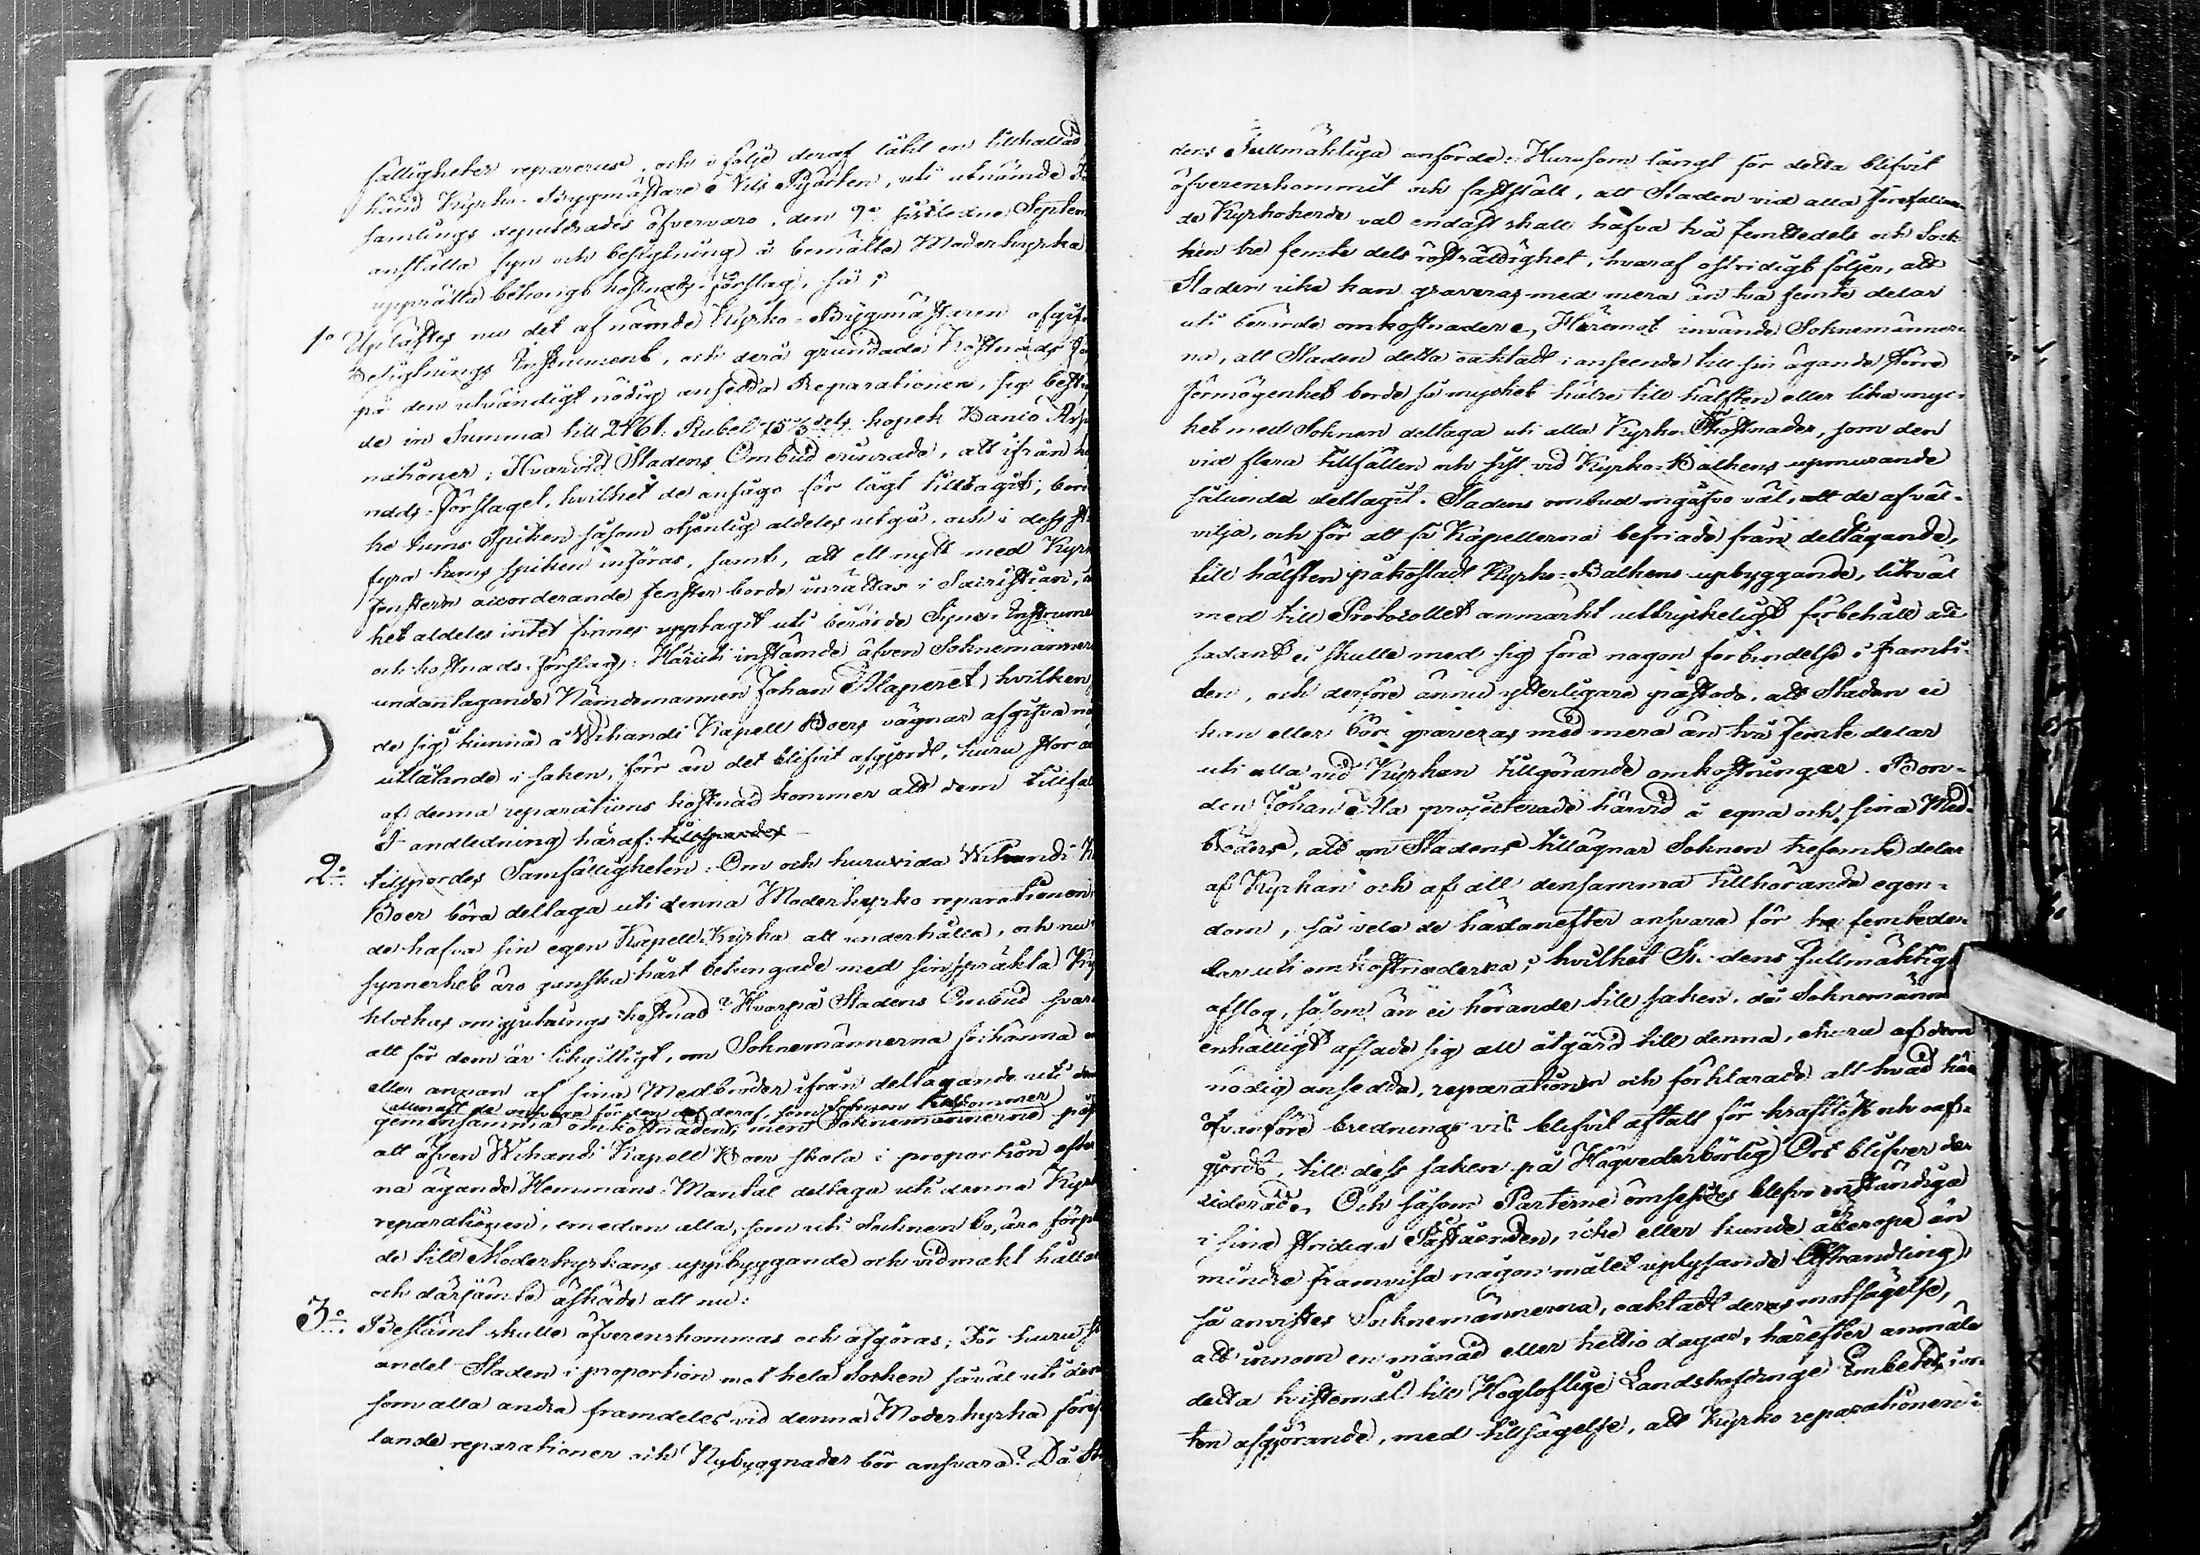 fälligheter repareras, och i följe deraf låtit en tillkallad
känd Kyrko-Byggmästare Nils Sjöeten, uti utnämde
samlings deputerades öfvervaro, den 9e sistledne Septem
anställa syn och besigtning å bemälte Moderkyrka
upprätta behörigt kostnads-förslag, så;
1o Uplästes nu det af nämde Kyrko-Bygmästaren afgifn
Besigtnings Instrument, och derå grundade Kostnads För
på den utvändigt nödig ansedda Reparationen, sig bestig
de in Summa till 2461: Rubel 75 dels kopek Banco Assig
nationer; Hvarvid Stadens Ombud erinrade, att ifrån ko
nads-Förslaget, hvilket de ansågo för lågt tilltagit, bord
tums Spiken såsom otjenlig aldeles utgå, och i dess st
fyra tums spiken införas, samt, att ett nytt med Kyrk
fenstern accorderande fenster borde inrättas i Sacristian,
ket aldeles intet finnes upptagit uti berörde Syne-Instrume
och kostnads-förslag: Häruti instämde äfven Soknemännern
undantagande Nämdemannen Johan Alaperet, hvilken
de sig kunna å Wihandi Kapell Boers vägnar afgifva nå
utlåtande i saken, förr än det blifvit afgjordt, huru stor a
af denna reparations kostnad kommer att dem tillfal
I andledning häraf: tillspordes
2o tillspordes Samfälligheten: Om och huruvida Wihandi K
Boer böra deltaga uti denna Moderkyrko reparationen
de hafva sin egen Kapell Kyrka att underhålla, och nu
synnerhet äro ganska hårt betungade med sin spräkta Ky
klockas omgjutnings kostnad? Hvarpå Stadens Ombud svar
att för dem är likgiltigt, om Soknemännerna förkänna e
eller annan af sina Medbröder ifrån deltagande uti den
allenast de ansvara för den del deraf, som Soknen tillkommer
gemensamma omkostnaden; men Soknemännerne på
att äfven Wihandi Kapell Boer skola i proportion efter
na ägande Hemmans-Mantal deltaga uti denna Kyrk
reparationen, emedan alla, som uti Soknen bo, äro förpli
de till Moderkyrkans uppbyggande och vidmakt hålla
och därjämte äskade att nu:
3o Bestämt skulle öfverenskommas och afgöras; För huru st
andel Staden i proportion mot hela Socken såväl uti den
som alla andra framdeles vid denna Moderkyrka föref
lande reparationer och Nybyggnader bör ansvara? Då St
dens Fullmäktiga anförde: Hurusom långt för detta blifvit
öfverenskommit och fastställt, att Staden vid alla förefallan
de Kyrkoherde val endast skall hafva två femtedels och Sock
nen tre femte dels rösträttighet, hvaraf ostridigt följer, att
Staden icke kan graveras med mera än två femte delar
uti berörde omkostnader. Häremot invände Soknemänner
na, att Staden detta oaktadt i anseende till sin ägande större
förmögenhet borde så mycket hälre till hälften eller lika myc
ket med Soknen deltaga uti alla Kyrko-Kostnader, som den
vid flera tillfällen och sist vid Kyrko-Balkens upmurande
sålunda deltagit. Stadens ombud medgåfvo väl, att de af väl-
vilja, och för att få Kapellerna befriade från deltagande,
till hälften påkostadt Kyrko-Balkens upbyggande, likväl
med till Protocollet anmärkt uttryckeligt förbehåll att
sådant ei skulle med sig föra någon förbindelse i framti-
den, och derföre ännu ytterligare påstod, att Staden ei
kan eller bör graveras med mera än två femte delar
uti alla vid Kyrkan tillgörande omkostningar. Bon-
den Johan Alla projecterade härvid å egna och sina Med-
bröders, att om Stadens tillägnar Soknen trefemte delar
af Kyrkan och af all densamma tillhörande egen-
dom, så vela de hädanefter ansvara för tre femtede-
lar uti omkostnaderna; hvilket Stadens Fullmäktige
afslog, såsom än ei hörande till saken, då Soknemänn
enhälligt afsade sig all åtgärd till denna, ehuru af dem
nödig ansedda, reparationen och förklarade att hvad hä
ofvanföre bredningsvis blifvit aftalt för kraftlöst och oaf-
gjordt till dess saken på Högvederbörlig Ort blifver de
ciderad. Och såsom Parterne ömsesides blefvo enständiga
i sina stridiga Påståenden, icke eller kunde åberopa än
mindre framvisa någon målet uplysande Afhandling;
så anvistes Socknemännerna, oaktadt deras motsägelse,
att innom en månad eller trettio dagar, härefter anmäla
detta tvistemål till Högloflige Landshöfdinge Embetets ior
ten afgjörande, med tillsägelse, att Kyrko reparationen i